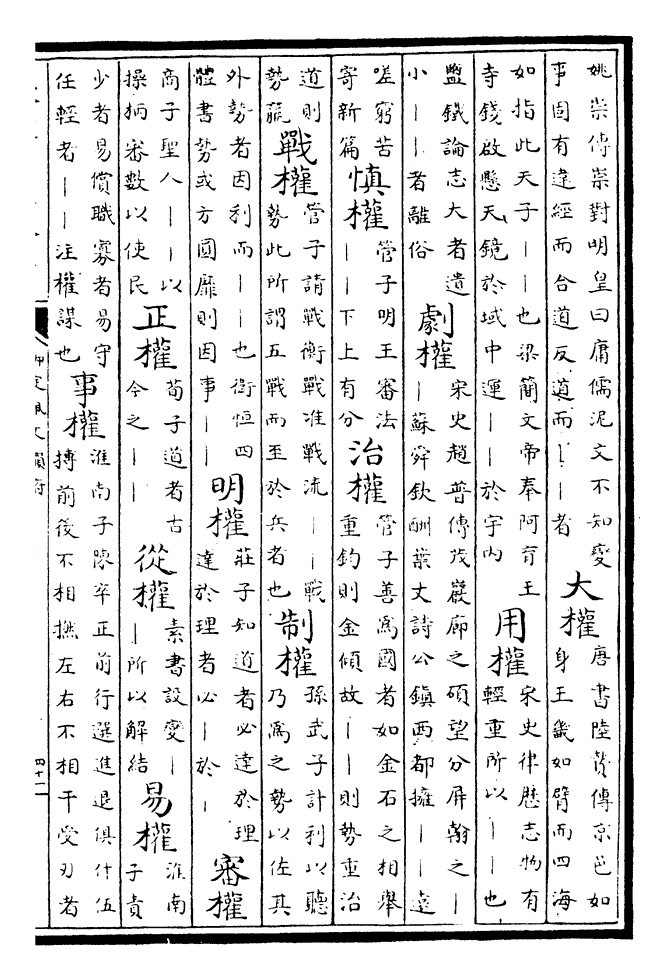 姚崇傳崇對明皇曰庸儒泥文不知變
事固有違經而合道反道而||者
大權
唐書陸贄傳京邑如
身王畿如臂而四海
如指此天子||也梁簡文帝奉阿育王
寺錢啟懸天鏡於域中運||於宇内
用權
宋史律歷志物有
輕重所以||也
鹽鐵論志大者遺
小||者離俗
劇權
宋史趙普傳茂巖廊之碩望分屏翰之|
|蘇舜欽酬葉丈詩公鎮西都擁||遠
嗟窮苦
寄新篇
慎權
管子明王審法
||下上有分
治權
管子善為國者如金石之相舉
重鈞則金傾故||則勢重治
道則
勢羸
戰權
管子請戰衡戰准戰流||戰
勢此所謂五戰而至於兵者也
制權
孫武子計利以聽
乃為之勢以佐其
外勢者因利而||也衛恒四
體書勢或方圓靡則因事||
明權
莊子知道者必達於理
達於理者必|於|
審權
商子聖人||以
操柄審數以使民
正權
荀子道者古
今之||
從權
素書設變|
|所以解結
易權
淮南
子責
少者易償職寡者易守
任輕者||注權謀也
事權
淮南子陳卒正前行選進退俱什伍
搏前後不相撚左右不相干受刃者
御定佩文韻府
四十一